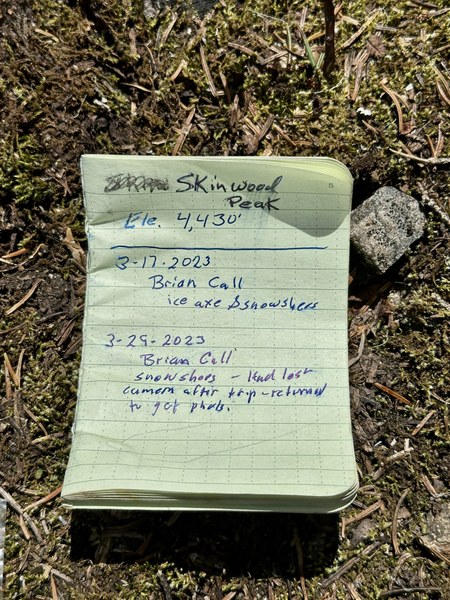 Skinwood
Peak
Ele. 4,430'
3-17-2023
Brian Call
ice axe & snowshoes
3-29-2023
Brian Call
snowshoes - Had lost
camera after trip - returned
to get photo.